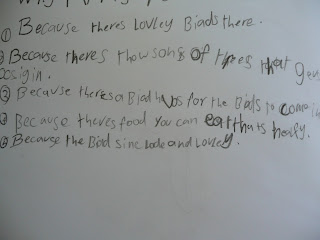 ① Because theres Lovley Biads there.
② Because theres thowsons of trees that gens
oosigin.
③ Because theres a Biad hus for the Bids to come in
Because theres food you can eat thats heafy.
Because the Biad sinc Lode and Lovley.